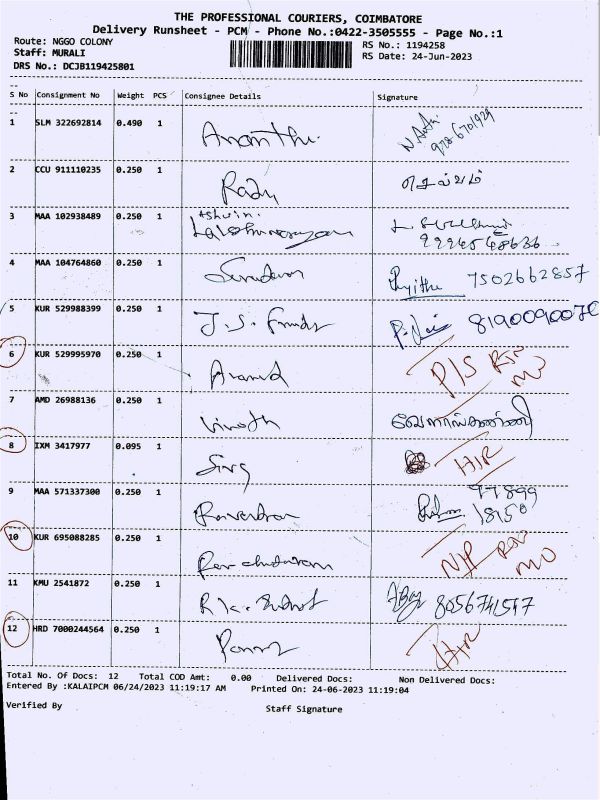 THE PROFESSIONAL COURIERS, COIMBATORE
Delivery Runsheet - PCM - Phone No.:0422-3505555 - Page No.:1
Route: NGGO COLONY
Staff: MURALI
DRS No.: DCJB119425801
RS No.: 1194258
RS Date: 24-Jun-2023
S No Consignment No Weight PCS Consignee Details Signature
1 SLM 322692814 0.490 1 Ananthu.
2 CCU 911110235 0.250 1 செல்வம்
3 MAA 102938489 0.250 1 Ashwin.
Lakshminarayan
4 MAA 104764860 0.250 1 7502662857
5 KUR 529988399 0.250 1 J.S. 8190090070
6 KUR 529995970 0.250 1 Aravind P/S
7 AMD 26988136 0.250 1 Vinoth
8 IXM 3417977 0.095 1 Siva H/R
9 MAA 571337300 0.250 1 97899
18150
10 KUR 695088285 0.250 1 Ramachandran N/P
11 KMU 2541872 0.250 1 R.K. 8056741547
12 HRD 7000244564 0.250 1 H/R
Total No. Of Docs: 12 Total COD Amt: 0.00 Delivered Docs: Non Delivered Docs:
Entered By :KALAIPCM 06/24/2023 11:19:17 AM Printed On: 24-06-2023 11:19:04
Verified By Staff Signature